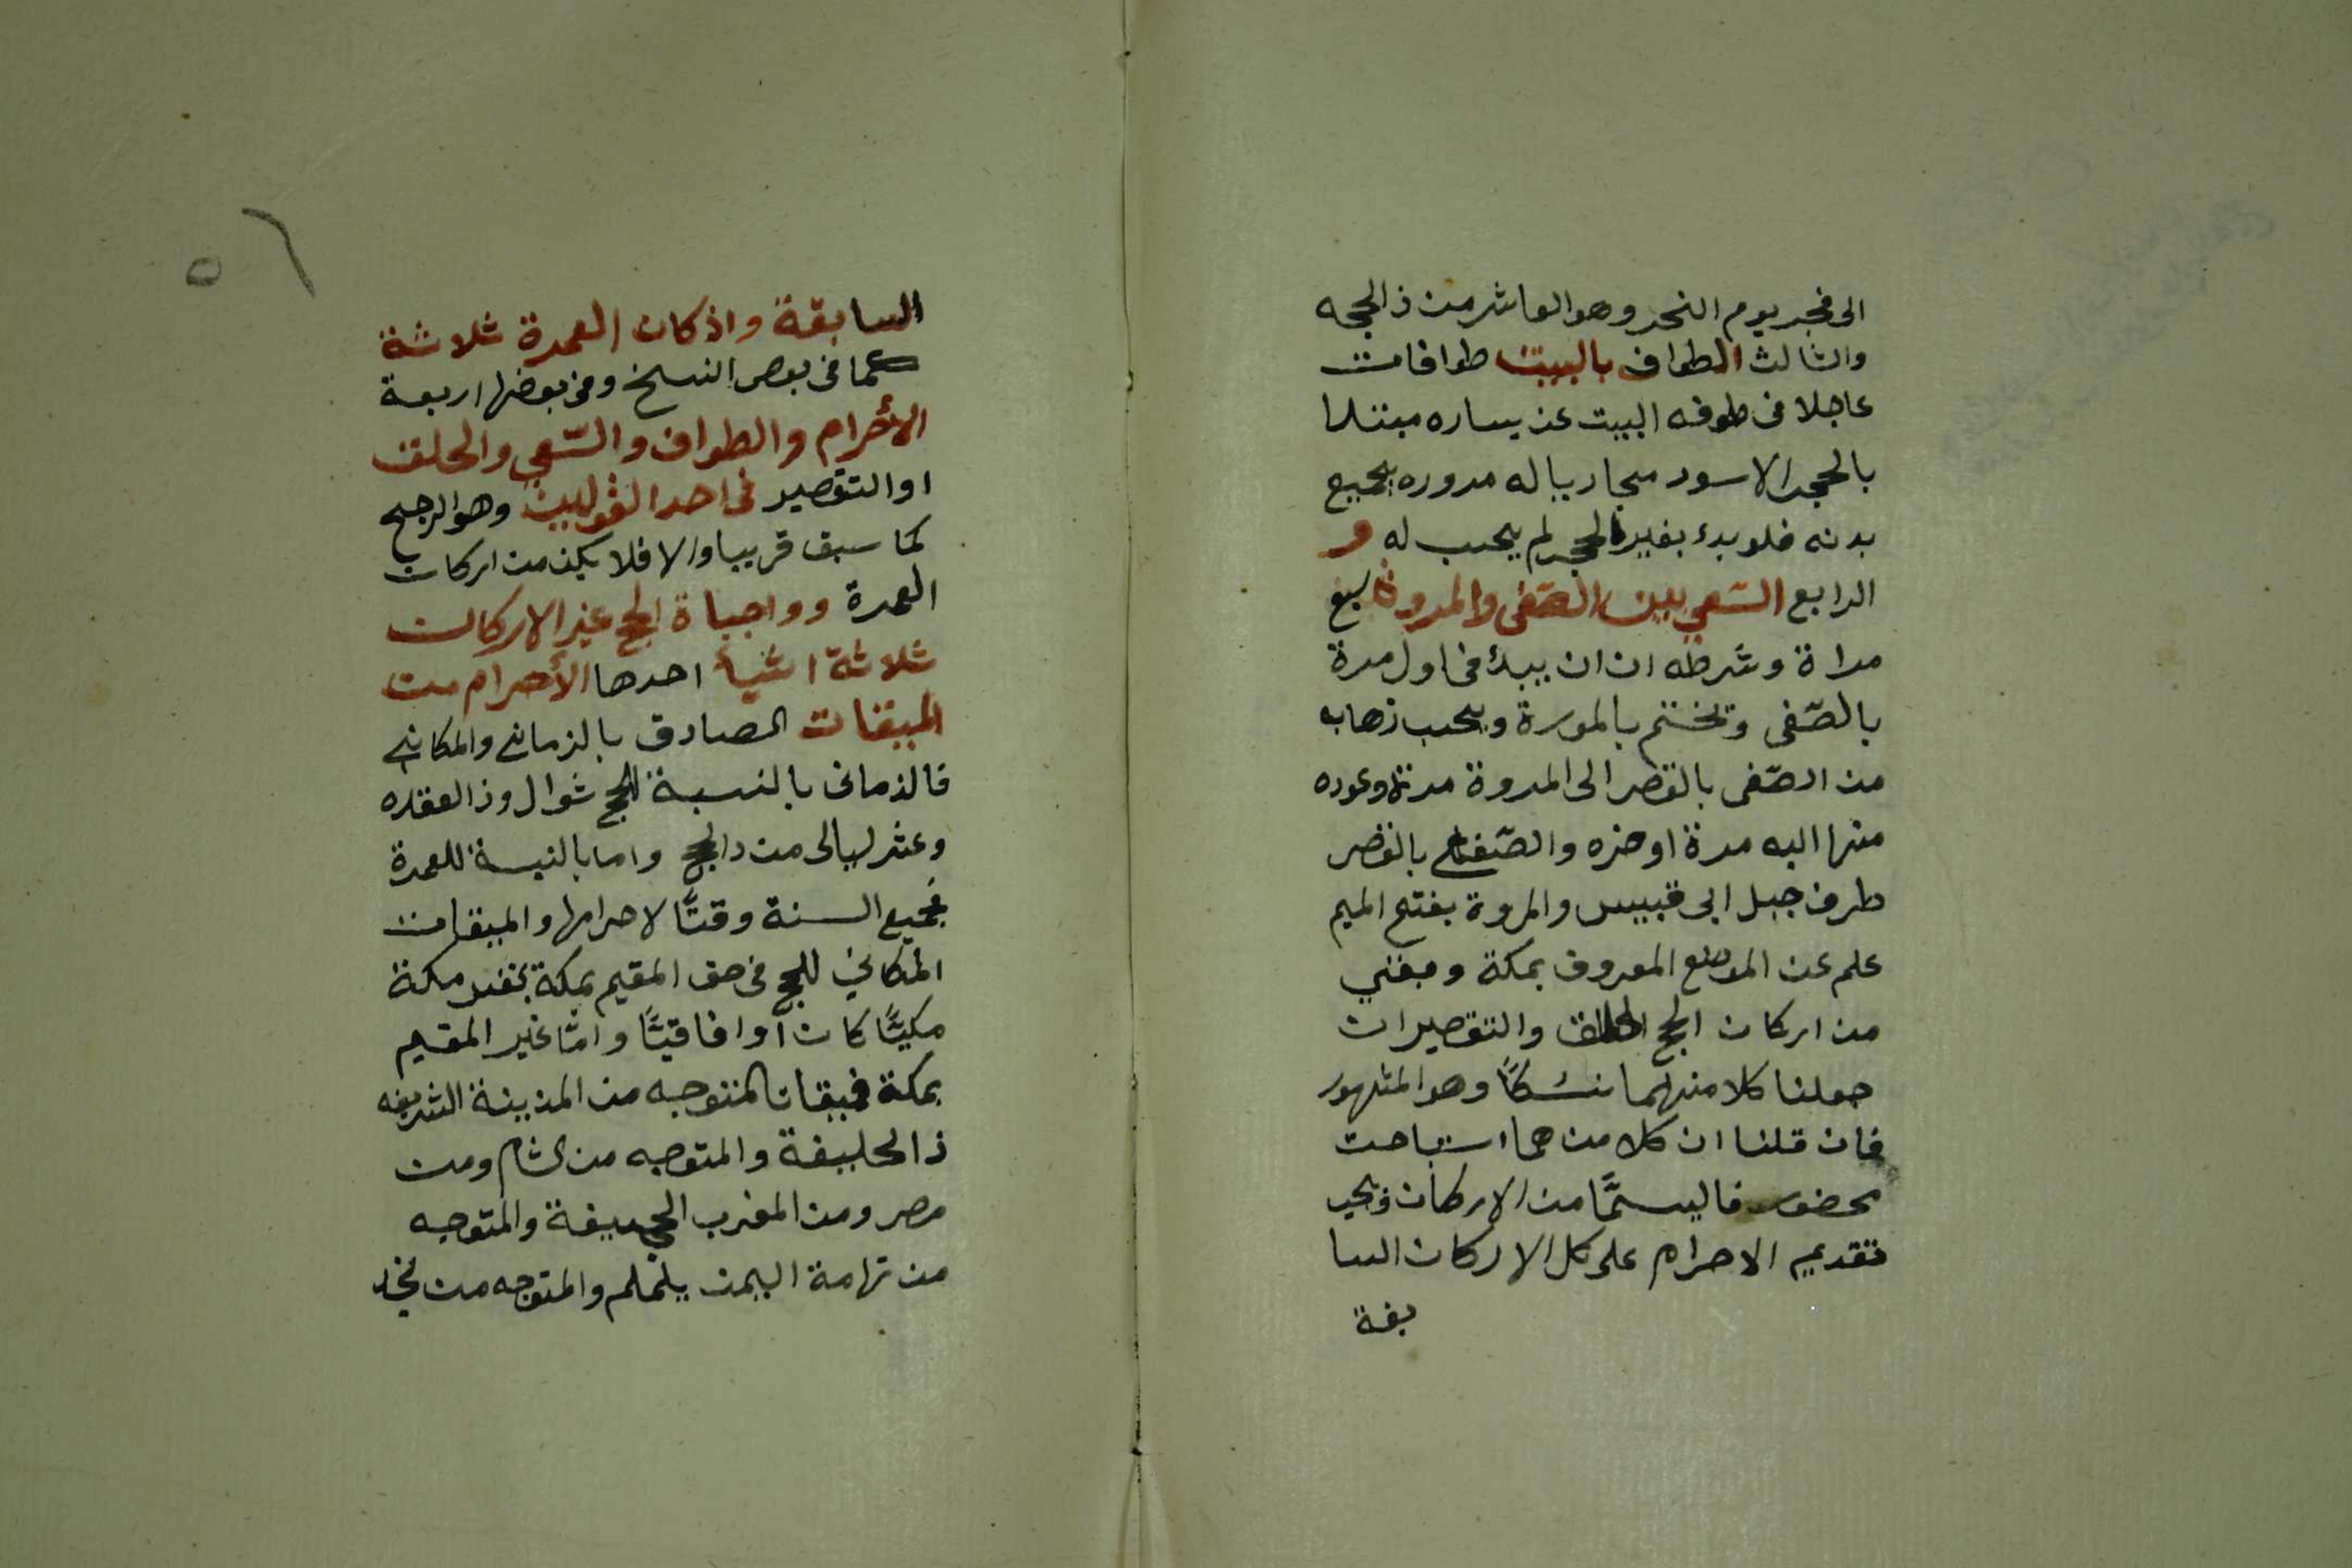 الى فجر يوم النحر وهو العاشر من ذالحجه
والثالث الطواف بالبيت طوافات
عاجلا فى طوفه البيت عن يساره مبتدا
بالحجر الاسود محاريبا له مدوره بجميع
بدنه فلو بدء بغير الحجر لم يحسب له و
الرابع السّعي بين الصّفى والمروة سبع
مراة وشرطه ان ان يبدأ فى اول مرة
بالصّفى وتختم بالمورة ويحسب ذهابه
من الصّفى بالقصر الى المروة مرة وعوده
منها اليه مرة اوخره والصّفا بالقصر
طرف جبل ابى قبيس والمروة بفتح الميم
علم عن الموضع المعروف بمكة وبقي
من اركان الحج الحلق والتقصيران
جعلنا كلا منهما نسكًا وهو المشهور
فان قلنا ان كلا من هما استباحت
محضور فاليستمّا من الاركان فيجب
تقديم الاحرام على كل الاركان السا
بقة
٥٦
السابقة واذ كان العمرة ثلاثة
كما فى بعض النسخ وفى بعضها اربعة
الأحرام والطواف والسّعي والحلق
او التقصير فى احد القولين وهو الرجح
كما سبق قريبا والا فلا يكن من اركان
العمرة وواجباة الحج غير الاركان
ثلاثة اشيأ احدها الأحرام من
الميقات الصادق بالزماني والمكاني
فالزمانى بالنسبة للحج شوال وذالعقده
وعشر ليالى من دالحج واما بالنسبة للعمرة
فجميع السنة وقتًا لاحرامها والميقات
المكاني للحج فى حق المقيم بمكة نفس مكة
مكيًّا كان أو افاقيًّا وامّا غير المقيم
بمكة فميقات المتوجه من المدينة الشريفه
ذالحليفة والمتوجه من الشام ومن
مصر ومن المغرب الحجيفة والمتوجه
من تهامة اليمن يلملم والمتوجه من نجد